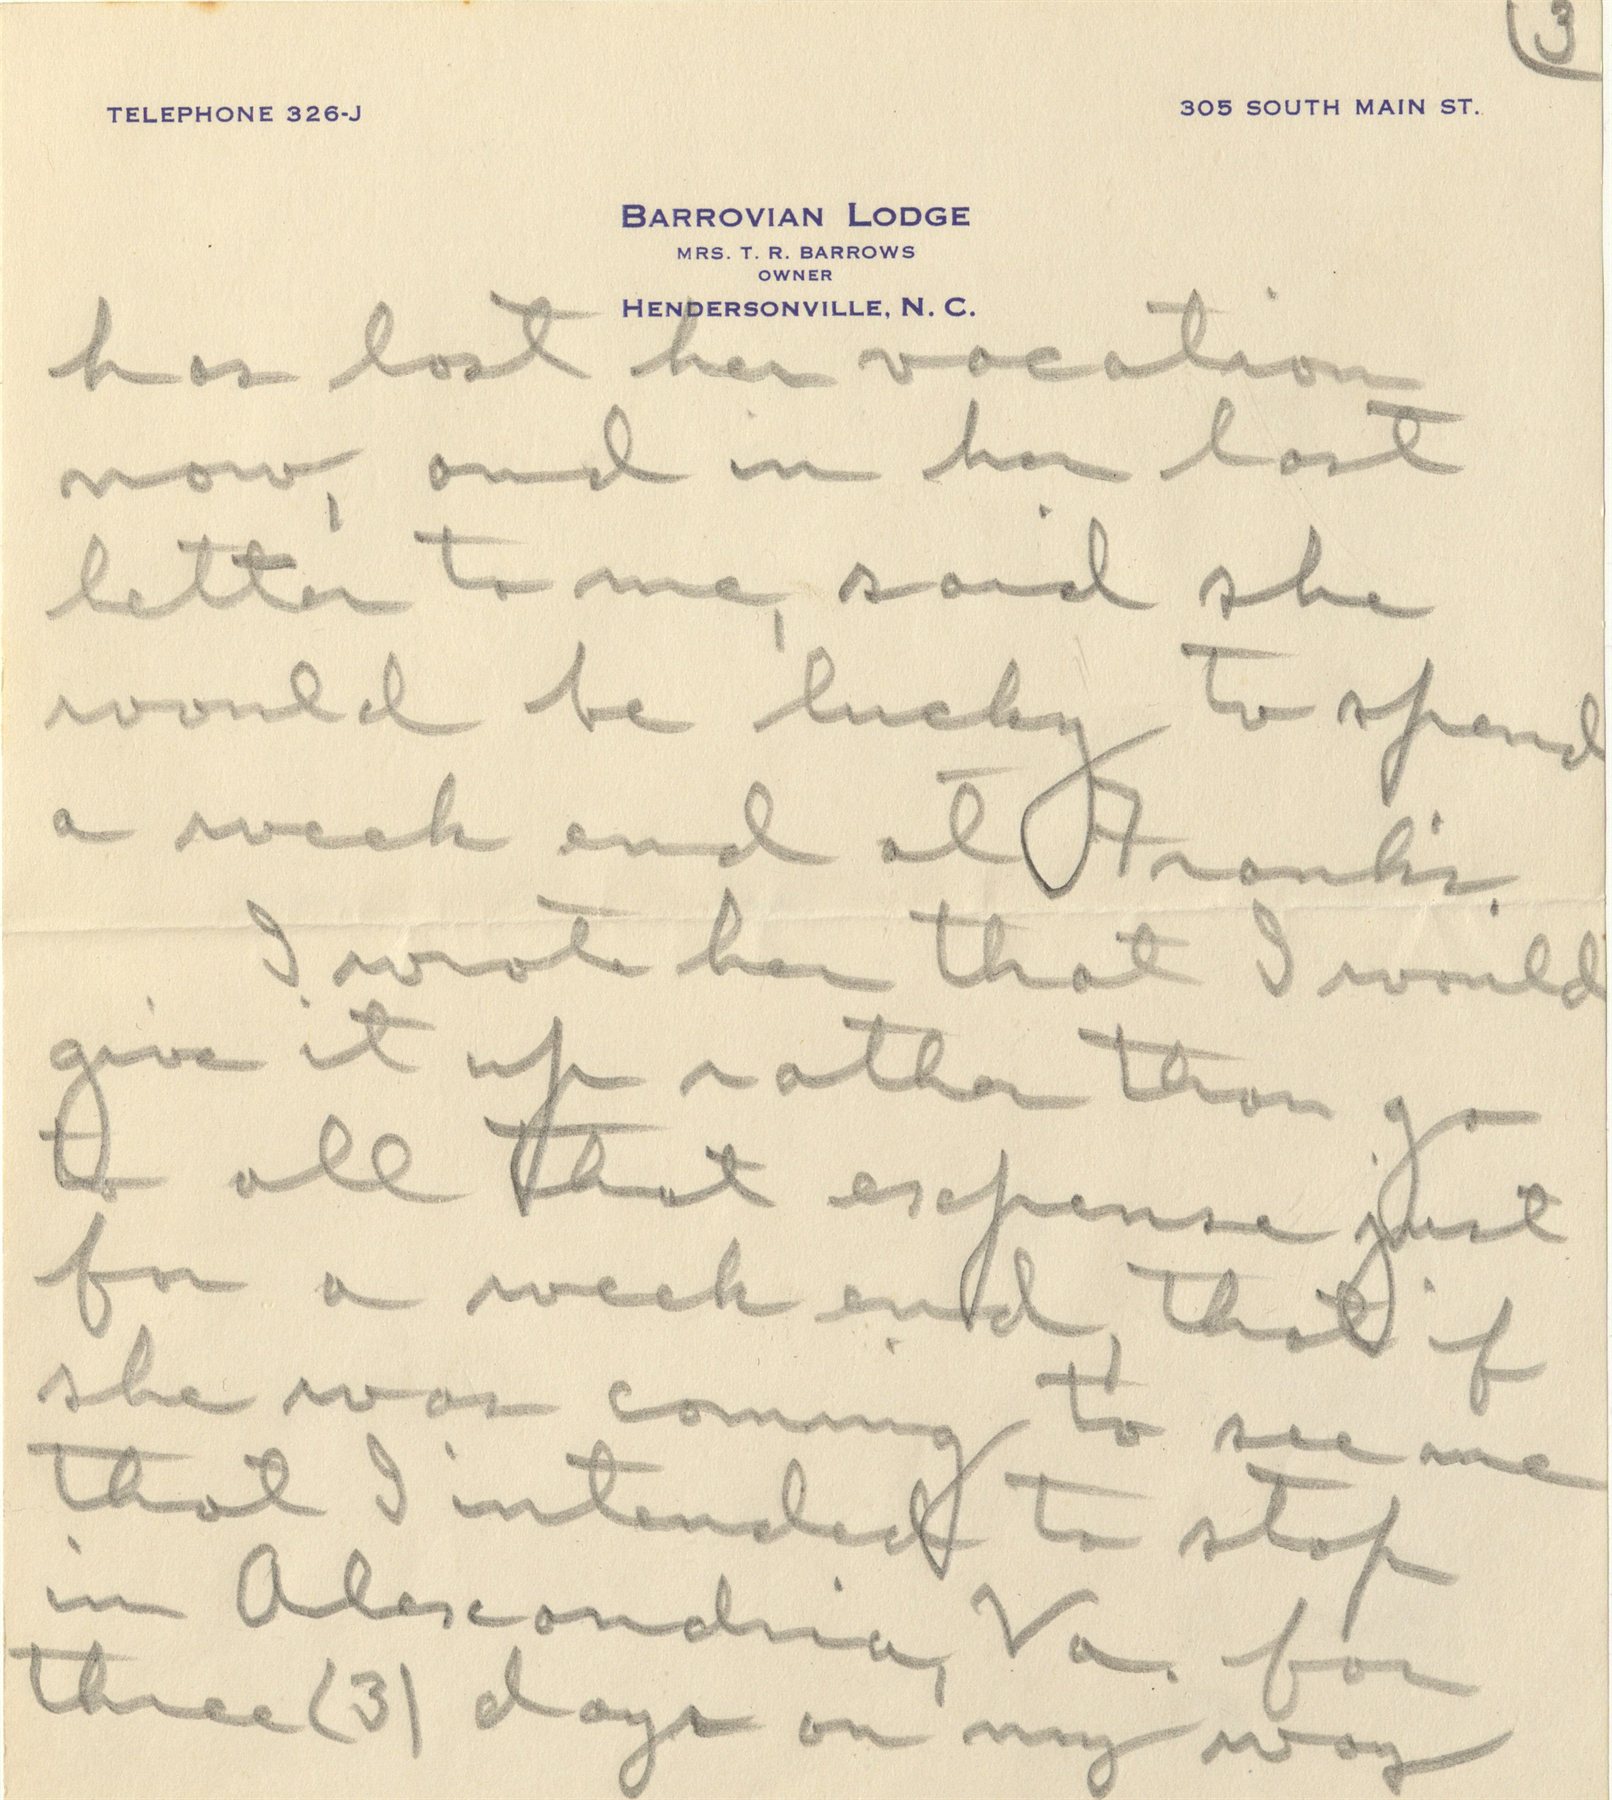 3
TELEPHONE 326-J
305 SOUTH MAIN ST.
BARROVIAN LODGE
MRS. T. R. BARROWS
OWNER
HENDERSONVILLE, N. C.
has lost her vacation
now, and in her last
letter to me, said she
would be lucky to spend
a week end at Frank's.
I wrote her that I would
give it up rather than go
to all that expense just
for a week end, that if
she was coming to see me
that I intended to stop
in Alexandria, Va. for
three (3) days on my way